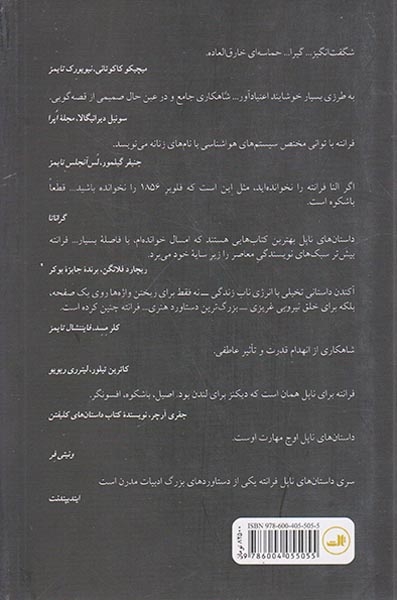 شگفت‌انگیز... گیرا... حماسه‌ای خارق‌العاده.
میچیکو کاکوتانی، نیویورک تایمز
به طرزی بسیار خوشایند اعتیادآور... شاهکاری جامع و در عین حال صمیمی از قصه‌گویی.
سونیل دیرانیگالا، مجلهٔ اُپرا
فرانته با توانی مختص سیستم‌های هواشناسی با نام‌های زنانه می‌نویسد.
جنیفر گیلمور، لُس‌آنجلس تایمز
اگر النا فرانته را نخوانده‌اید، مثل این است که فلوبرِ ۱۸۵۶ را نخوانده باشید... قطعاً
باشکوه است.
گرانتا
داستان‌های ناپل بهترین کتاب‌هایی هستند که امسال خوانده‌ام، با فاصلهٔ بسیار... فرانته
بیش‌تر سبک‌های نویسندگی معاصر را زیر سایهٔ خود می‌برد.
ریچارد فلانگن، برندهٔ جایزهٔ بوکر
آکندن داستانی تخیلی با انرژی ناب زندگی ــ نه فقط برای ریختن واژه‌ها روی یک صفحه،
بلکه برای خلق نیرویی غریزی ــ بزرگ‌ترین دستاورد هنری... فرانته چنین کرده است.
کلر مسد، فایننشال تایمز
شاهکاری از انهدام قدرت و تأثیر عاطفی.
کاترین تیلور، لیترری ریویو
فرانته برای ناپل همان است که دیکنز برای لندن بود. اصیل، باشکوه، افسونگر.
جفری آرچر، نویسندهٔ کتاب داستان‌های کلیفتن
داستان‌های ناپل اوج مهارت اوست.
ونیتی فر
سری داستان‌های ناپل فرانته یکی از دستاوردهای بزرگ ادبیات مدرن است
ایندیپندنت
ISBN 978-600-405-505-5
9 786004 055055
تومان
ثالث